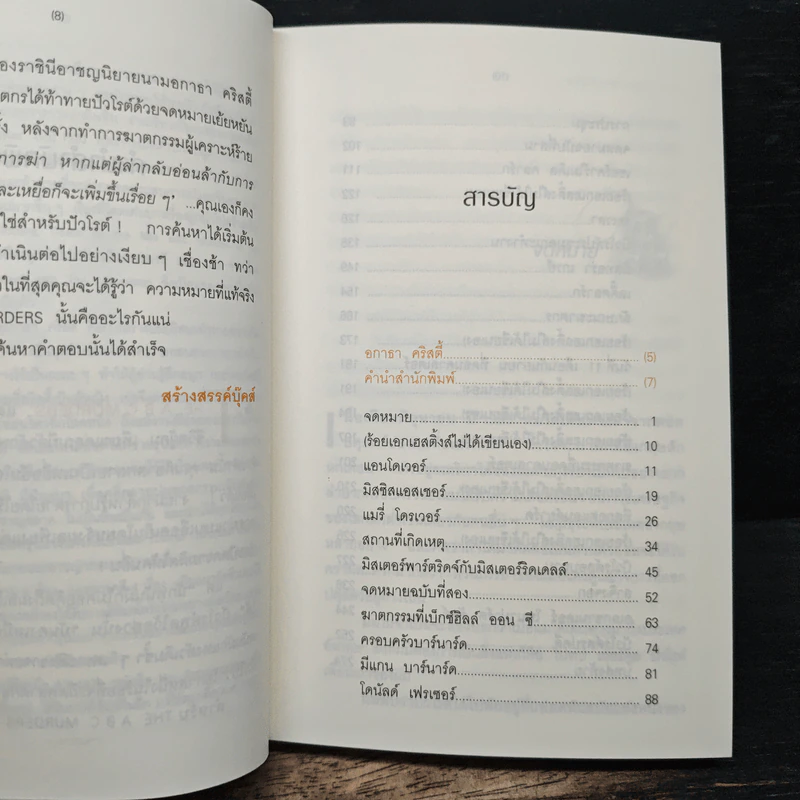 (8)
องราชินีอาชญนิยายนามอกาธา คริสตี้
ตกรได้ท้าทายปัวโรต์ด้วยจดหมายเย้ยหยัน
ั้ง หลังจากทำการฆาตกรรมผู้เคราะห์ร้าย
การฆ่า หากแต่ผู้ล่ากลับอ่อนล้ากับการ
ละเหยื่อก็จะเพิ่มขึ้นเรื่อย ๆ" ...คุณเองก็คง
ใช่สำหรับปัวโรต์ ! การค้นหาได้เริ่มต้น
ำเนินต่อไปอย่างเงียบ ๆ เชื่องช้า ทว่า
าในที่สุดคุณจะได้รู้ว่า ความหมายที่แท้จริง
RDERS นั้นคืออะไรกันแน่
ค้นหาคำตอบนั้นได้สำเร็จ
สร้างสรรค์บุ๊คส์
สารบัญ
อกาธา คริสตี้ (5)
คำนำสำนักพิมพ์ (7)
จดหมาย 1
(ร้อยเอกเฮสติ้งส์ไม่ได้เขียนเอง) 10
แอนโดเวอร์ 11
มิสซิสแอสเซอร์ 19
แมรี่ โดรเวอร์ 26
สถานที่เกิดเหตุ 34
มิสเตอร์พาร์ตริดจ์กับมิสเตอร์ริดเดลล์ 45
จดหมายฉบับที่สอง 52
ฆาตกรรมที่เบ็กซ์ฮิลล์ ออน ซี 63
ครอบครัวบาร์นาร์ด 74
มีแกน บาร์นาร์ด 81
โดนัลด์ เฟรเซอร์ 88